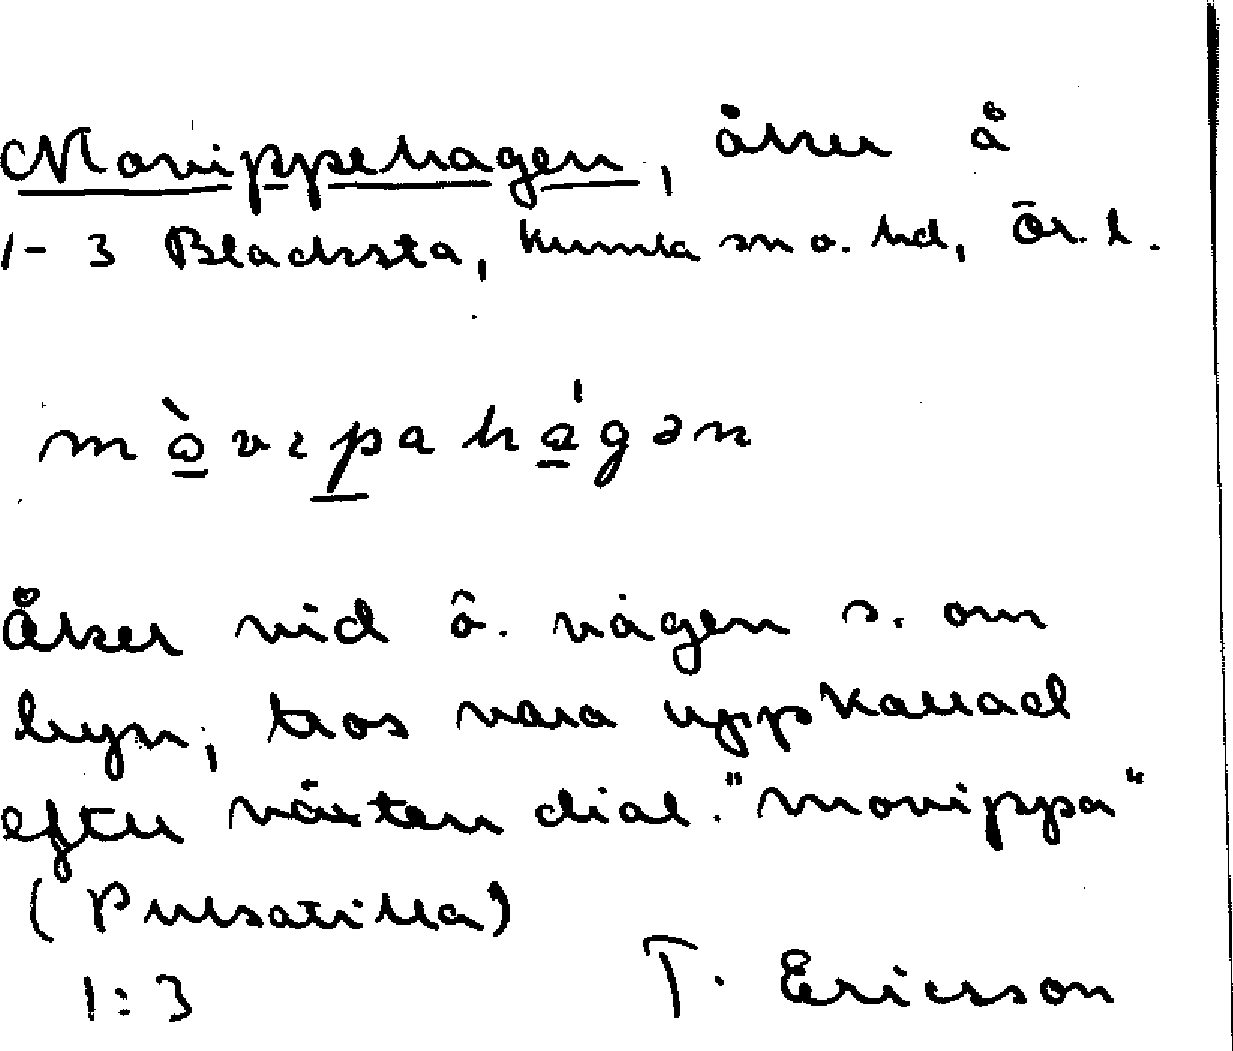 Movippehagen, åker å
1-3 Blacksta, Kumla sn o. hd, Ör. l.
mòvɩpahágən
Åker vid ö. vägen s. om
byn, tros vara uppkallad
efter växten dial. "movippa"
(Pulsatilla)
1:3 T. Ericsson